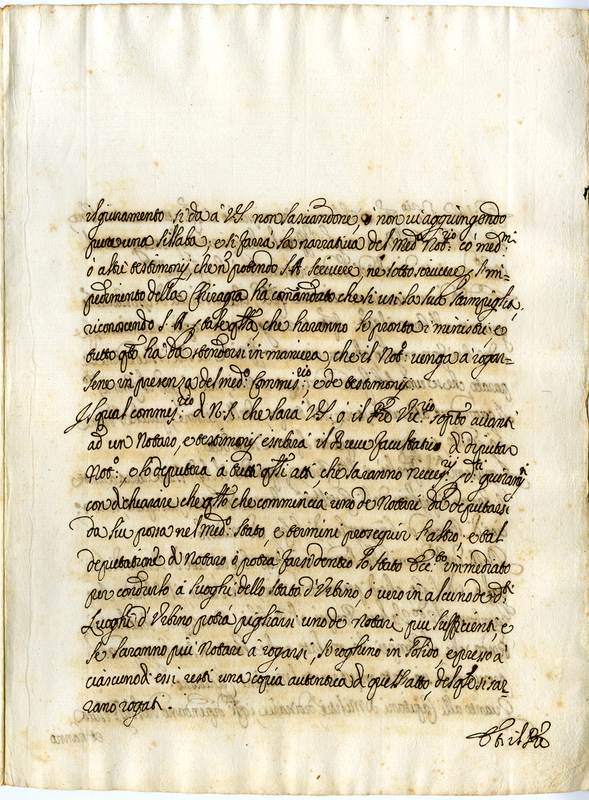 il giuramento si da à V.S. non lasciandone, ò non vi aggiungendo
pure una sillaba, e si farrà la narrativa del med.º Not.rio có med.mi
ò altri testimonij che nõ potendo S.A. scrivere, nè sottoscrivere p̃ im-
pedimento della Chiragra hà comãndato che si usi la sua stampiglia,
riconoscendo S.A. p̃ tale q̃lla che haranno in pronta i ministri, e
tutto q̃to hà da stendersi in maniera, che il Not.º venga à rogar-
sene in presenza del med.º Commis.rio, e de testimonij.
Il qual commis.rio d N.S. che sarà V.S. ò il Pre Vic.rio sop.to avanti
ad un Notaro, e testimonij esibirà il Breve facultativo d diputar
Not.º, e lo deputerà à tutti q̃lli atti, che saranno necess.rij p̃ d.ti giuram.ti
con dichiarare che q̃llo che commincia uno de Notari da deputarsi
da lui possa nel med.º stato, e termini proseguir l'altro, e tal
deputatione d Notaro ò potrà farsi dentro lo stato Ecc.co immediato
per condurlo à luoghi dello stato d'Urbino, ò vero in alcuno de d.ti
Luoghi d'Urbino potrà pigliarsi uno de notari più sufficienti, e
se saranno più Notari à rogarsi, si roghino in solido, e presso à
ciascuno d essi resti una copia autentica d quell'atto, del q̃le si sa-
ranno rogati.